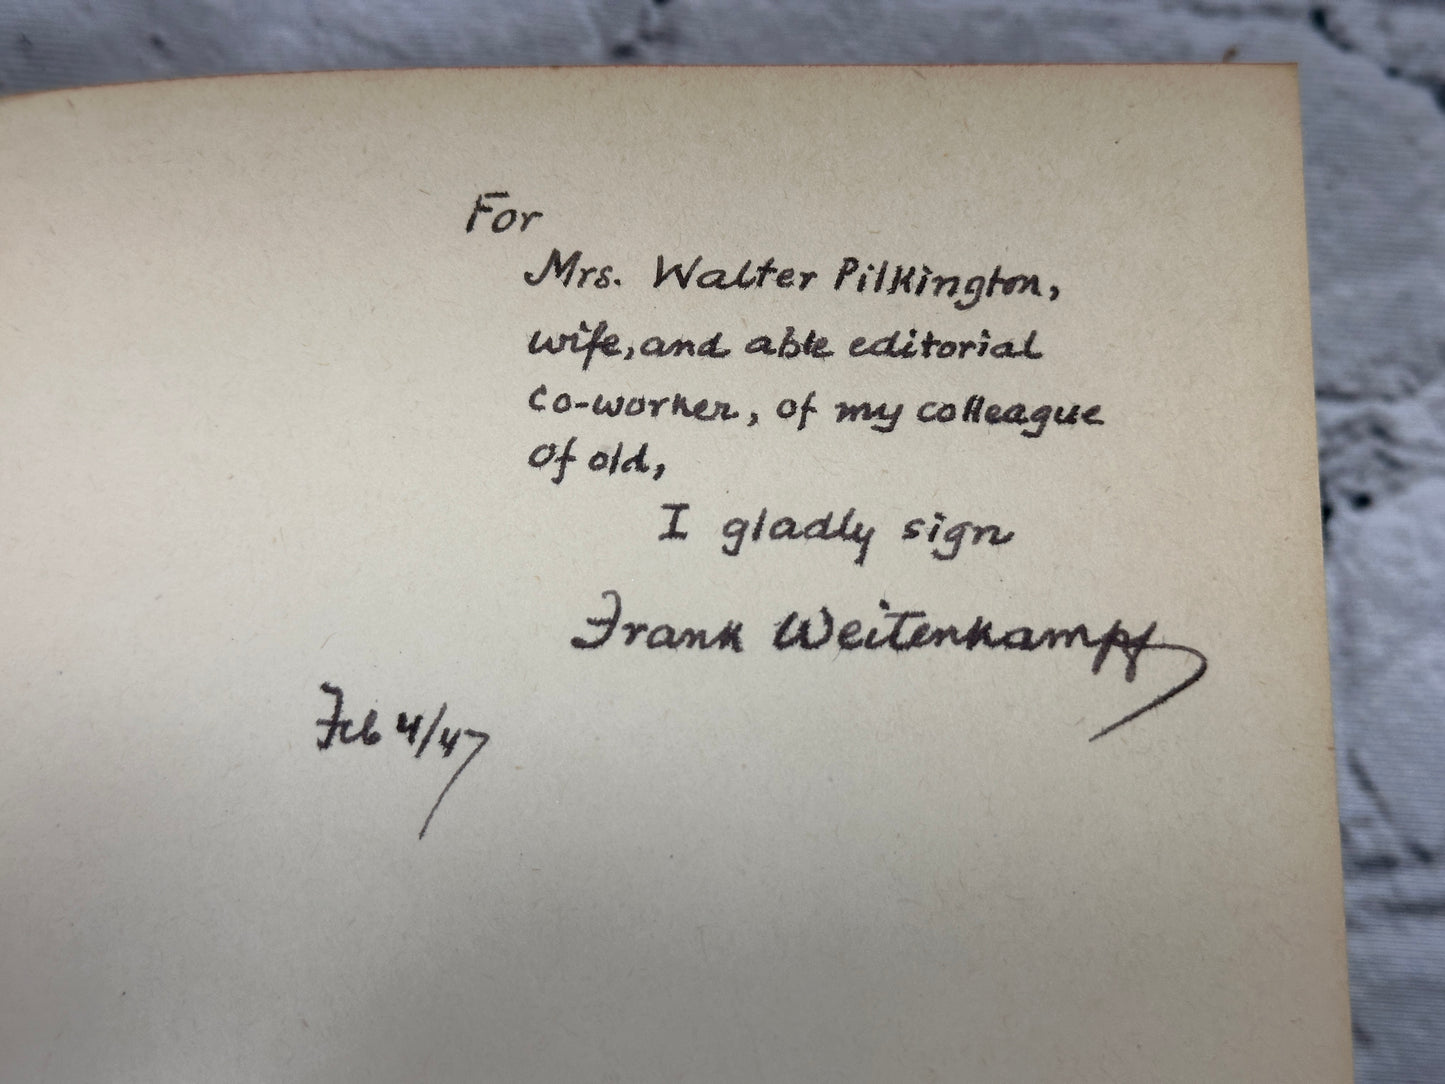 For
Mrs. Walter Pilkington,
wife, and able editorial
co-worker, of my colleague
of old,
I gladly sign
Frank Weitenkampf
Feb 4/47